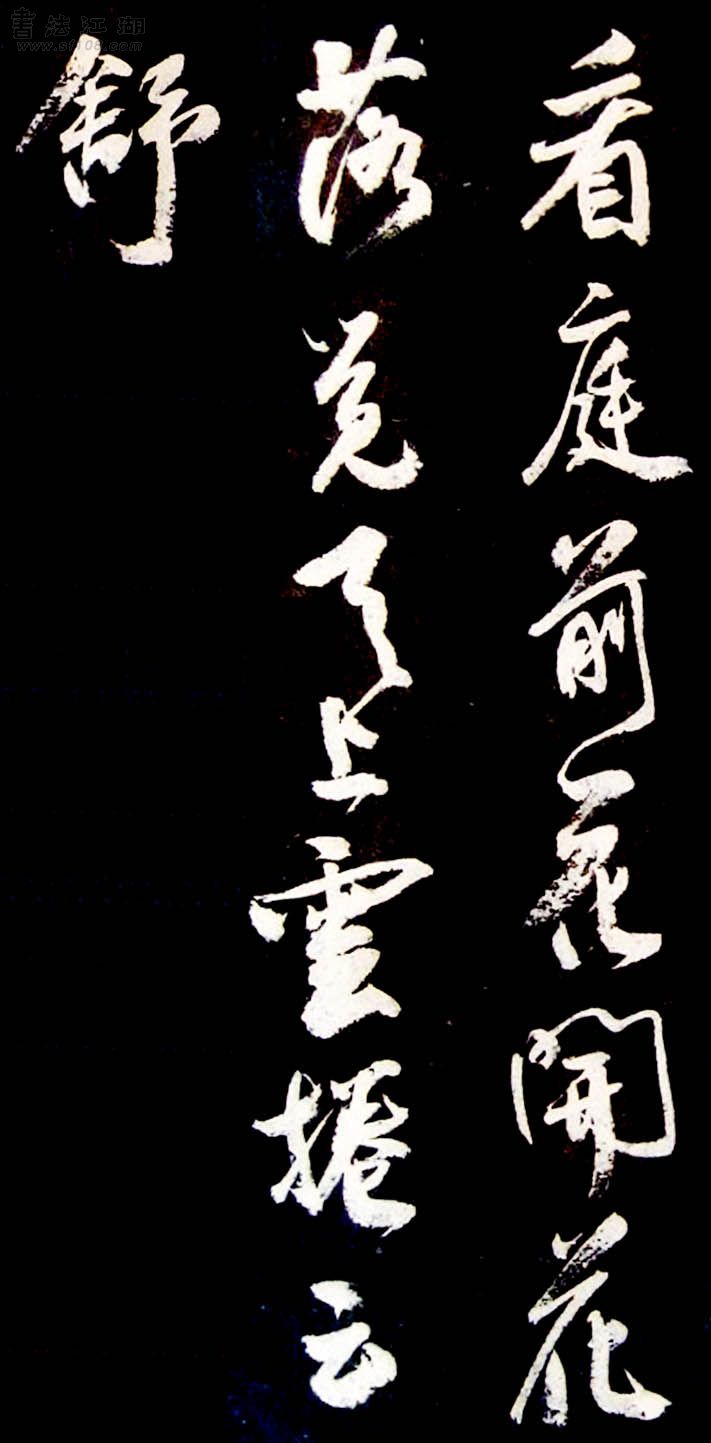 看庭前花開花
落览天上雲捲云
舒
書法江湖
www.sf108.com